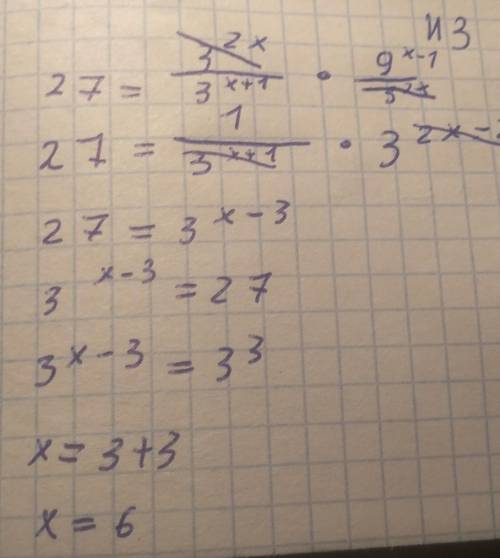 ИЗ
27 = 3^{2x} / 3^{x+1} · 9^{x-1} / 3^{2x}
27 = 1 / 3^{x+1} · 3^{2x-2}
27 = 3^{x-3}
3^{x-3} = 27
3^{x-3} = 3^3
x = 3+3
x = 6